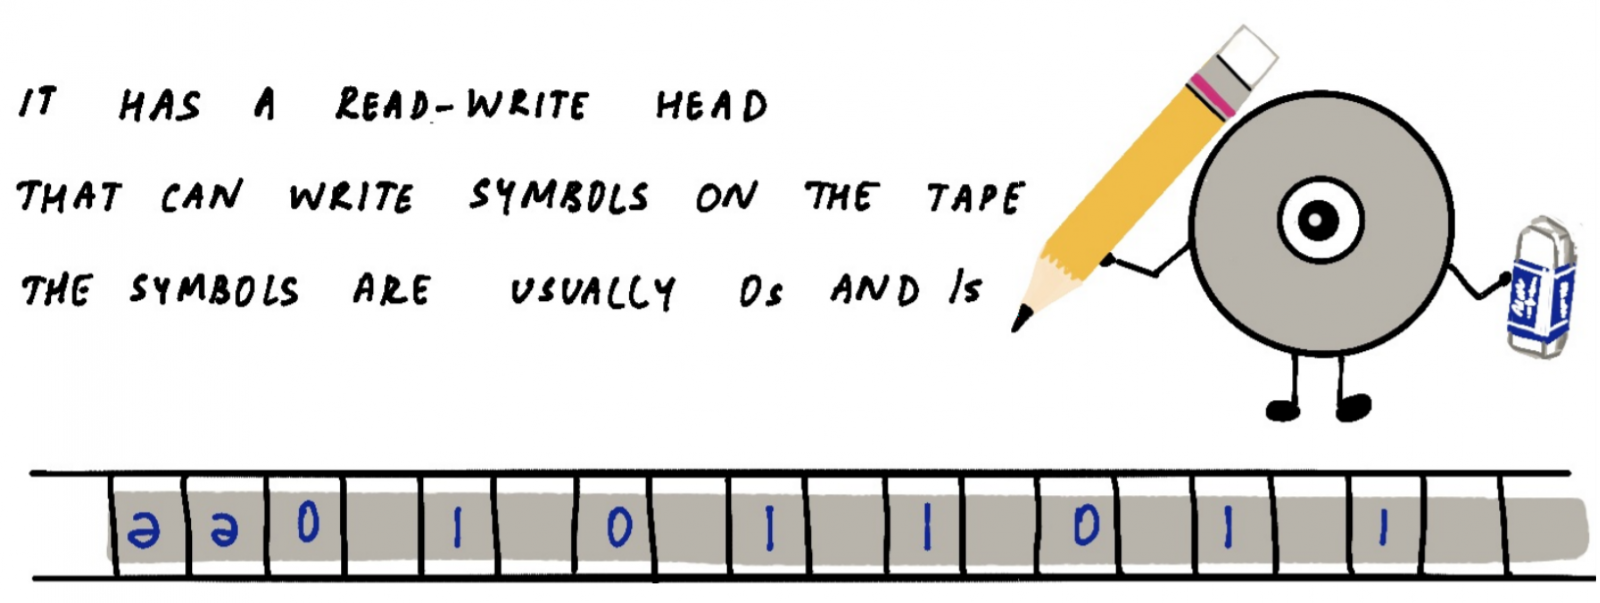 IT HAS A READ-WRITE HEAD
THAT CAN WRITE SYMBOLS ON THE TAPE
THE SYMBOLS ARE USUALLY 0s AND 1s
ə ə 0 1 0 1 1 0 1 1